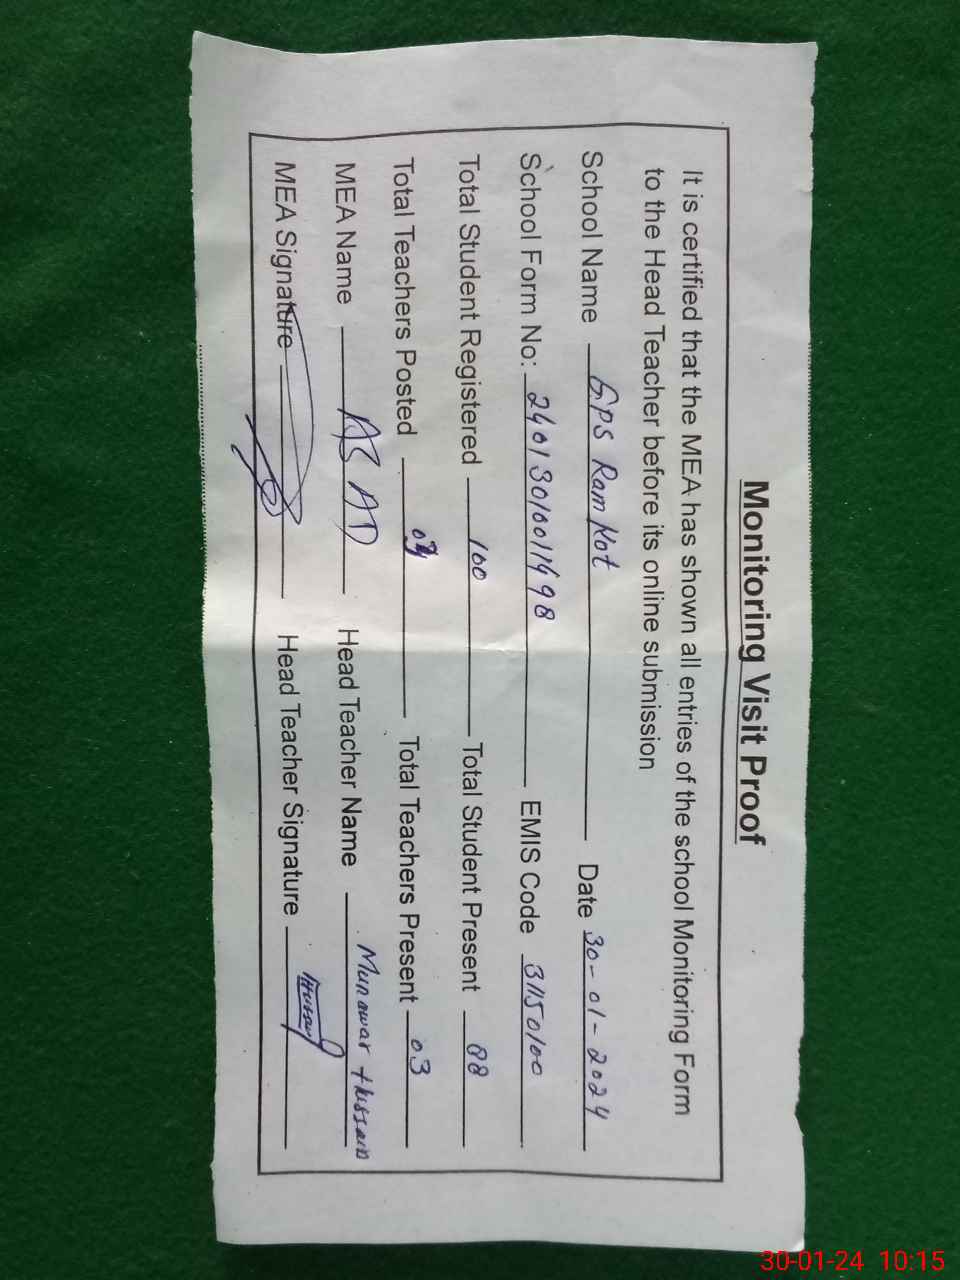 Monitoring Visit Proof
It is certified that the MEA has shown all entries of the school Monitoring Form
to the Head Teacher before its online submission
School Name GPS Ram Kot Date 30-01-2024
School Form No: 24013010011498 EMIS Code 31150100
Total Student Registered 100 Total Student Present 88
Total Teachers Posted 03 Total Teachers Present 03
MEA Name ASAD Head Teacher Name Munawar Hussain
MEA Signature Head Teacher Signature
30-01-24 10:15